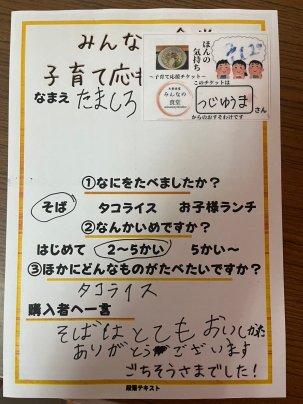 みんな
子育て応
ほんの
気持ち
～子育て応援チケット～
このチケットは
みんなの
食堂
つじゆうま さん
からのおすそわけです
なまえ たましろ
①なにをたべましたか？
そば タコライス お子様ランチ
②なんかいめですか？
はじめて 2～5かい 5かい～
③ほかにどんなものがたべたいですか？
タコライス
購入者へ一言
そばはとてもおいしかた
ありがとうございます
ごちそうさまでした！
段落テキスト